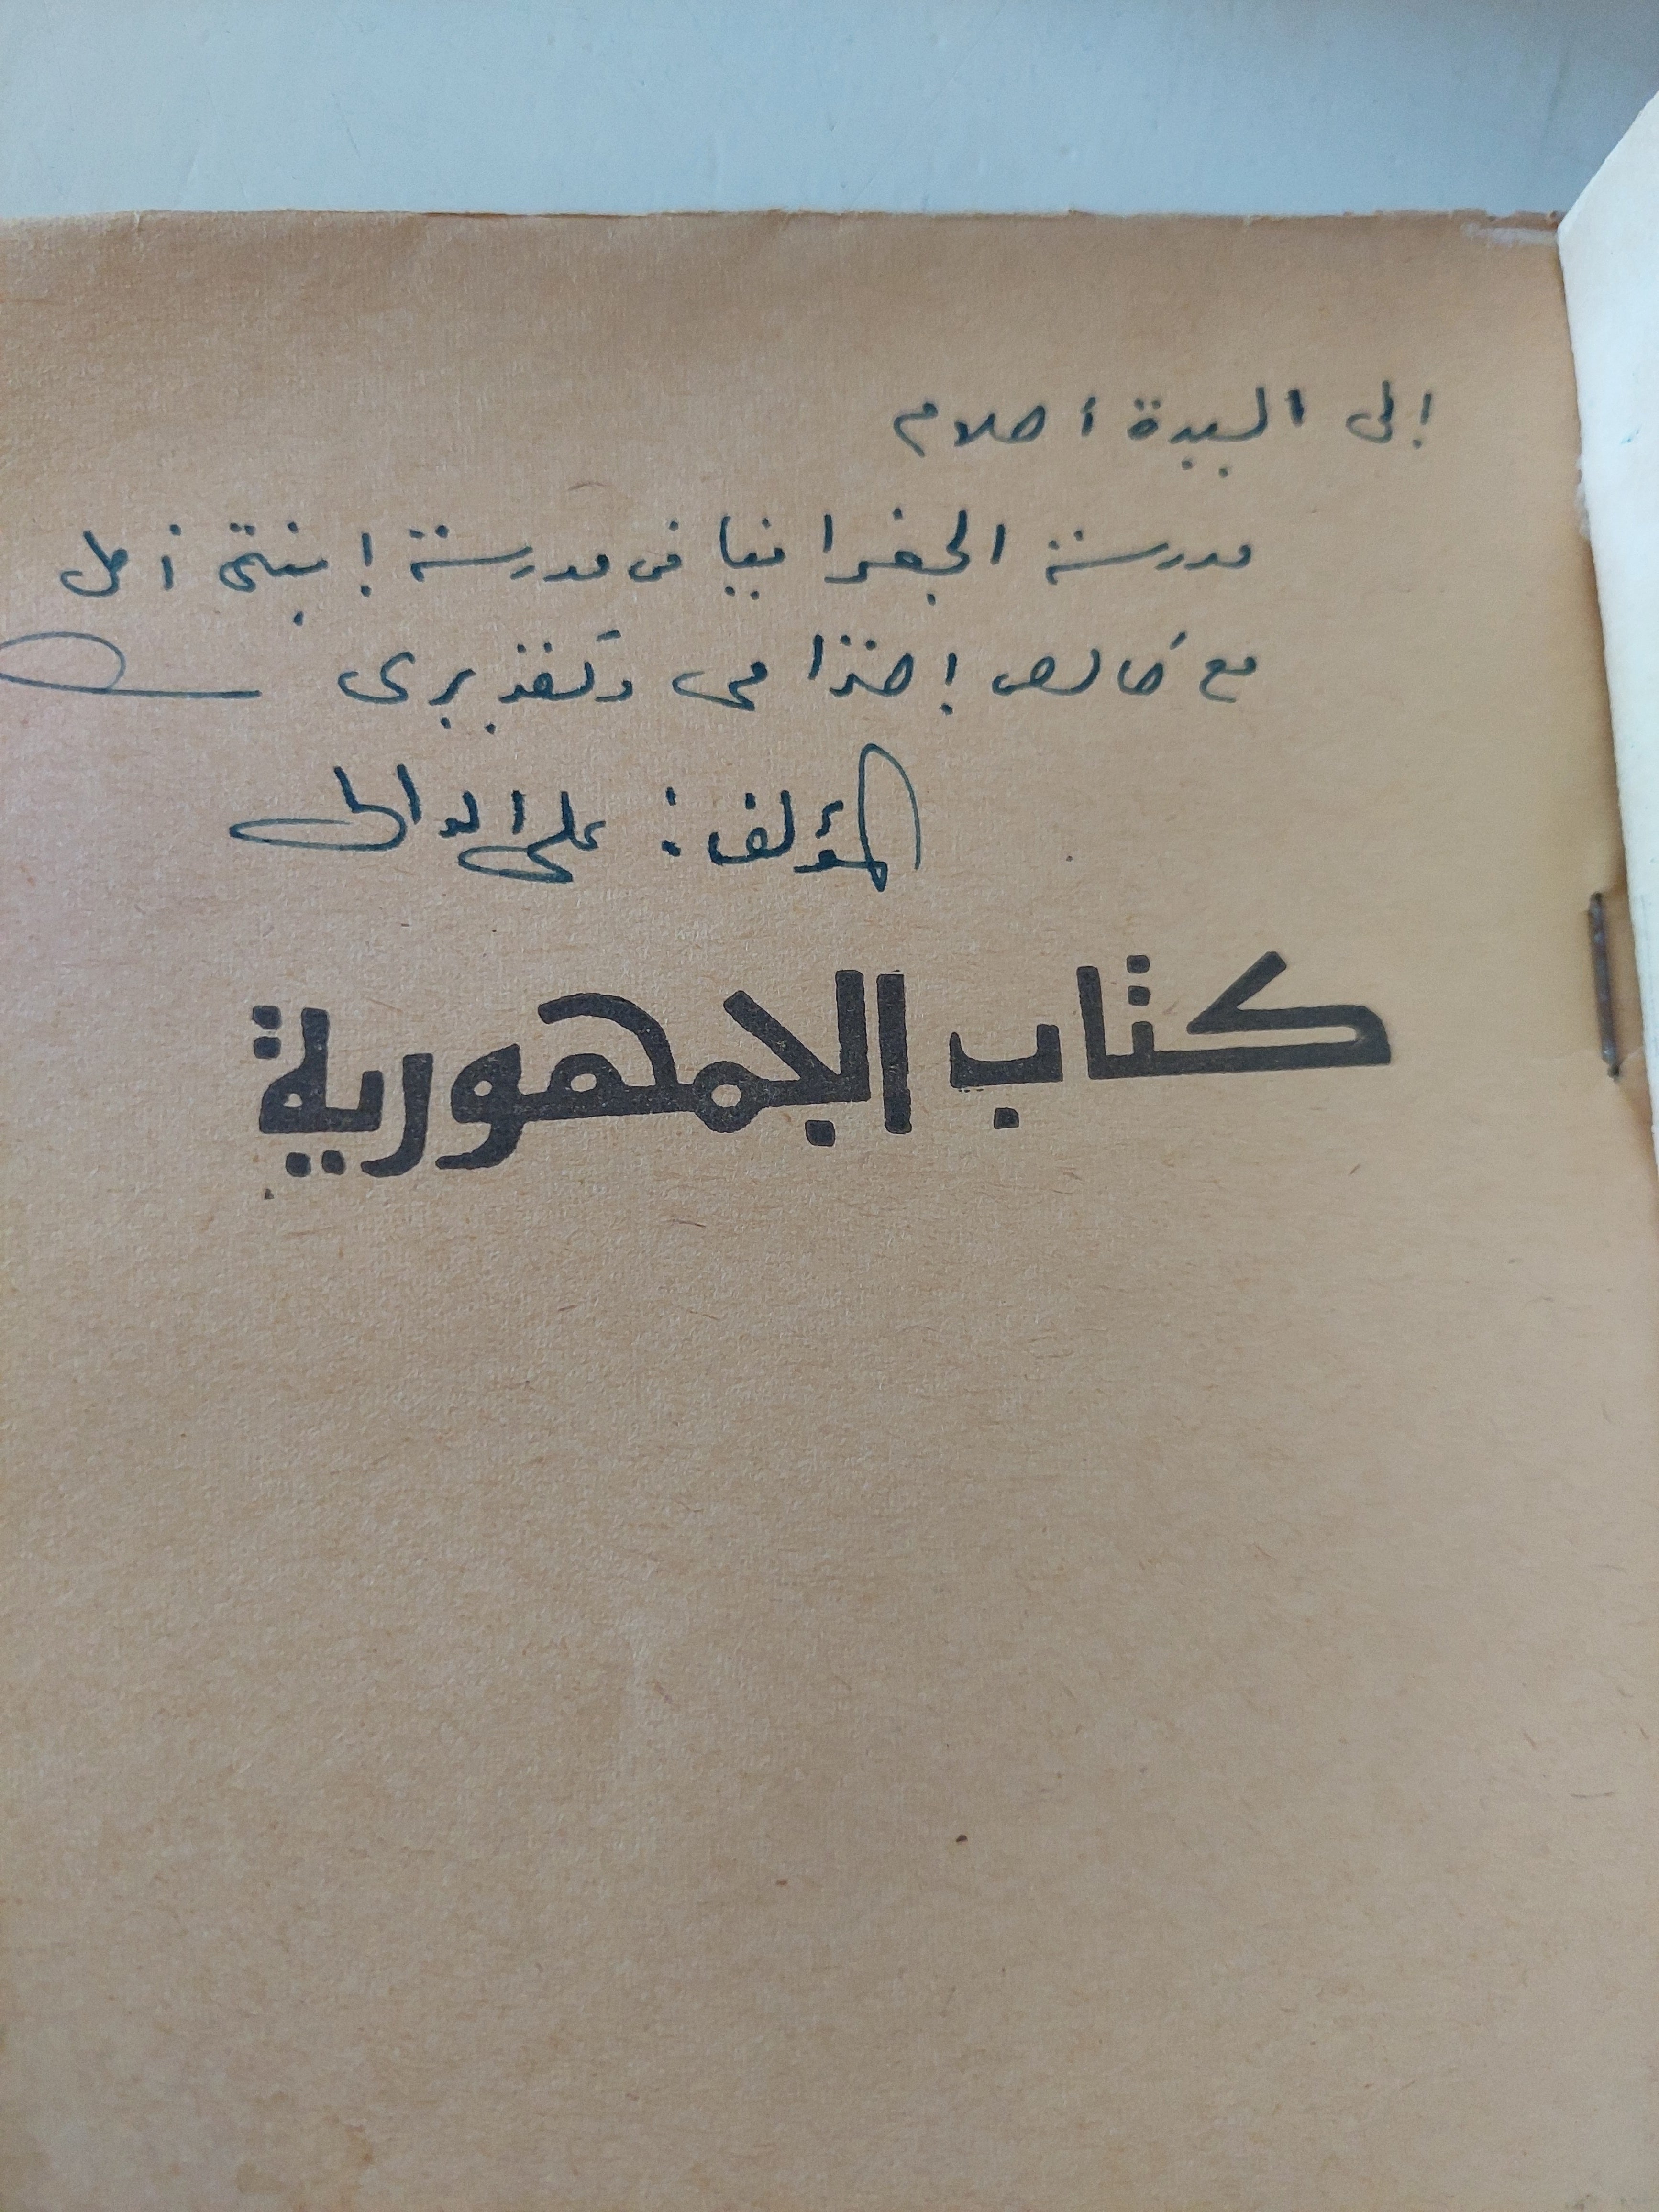 إلى السيدة أحلام
مدرسة الجغرافيا فى مدرسة إبنتى أمل
مع خالص إحترامى وتقديرى
المؤلف: على الدالى
كتاب الجمهورية